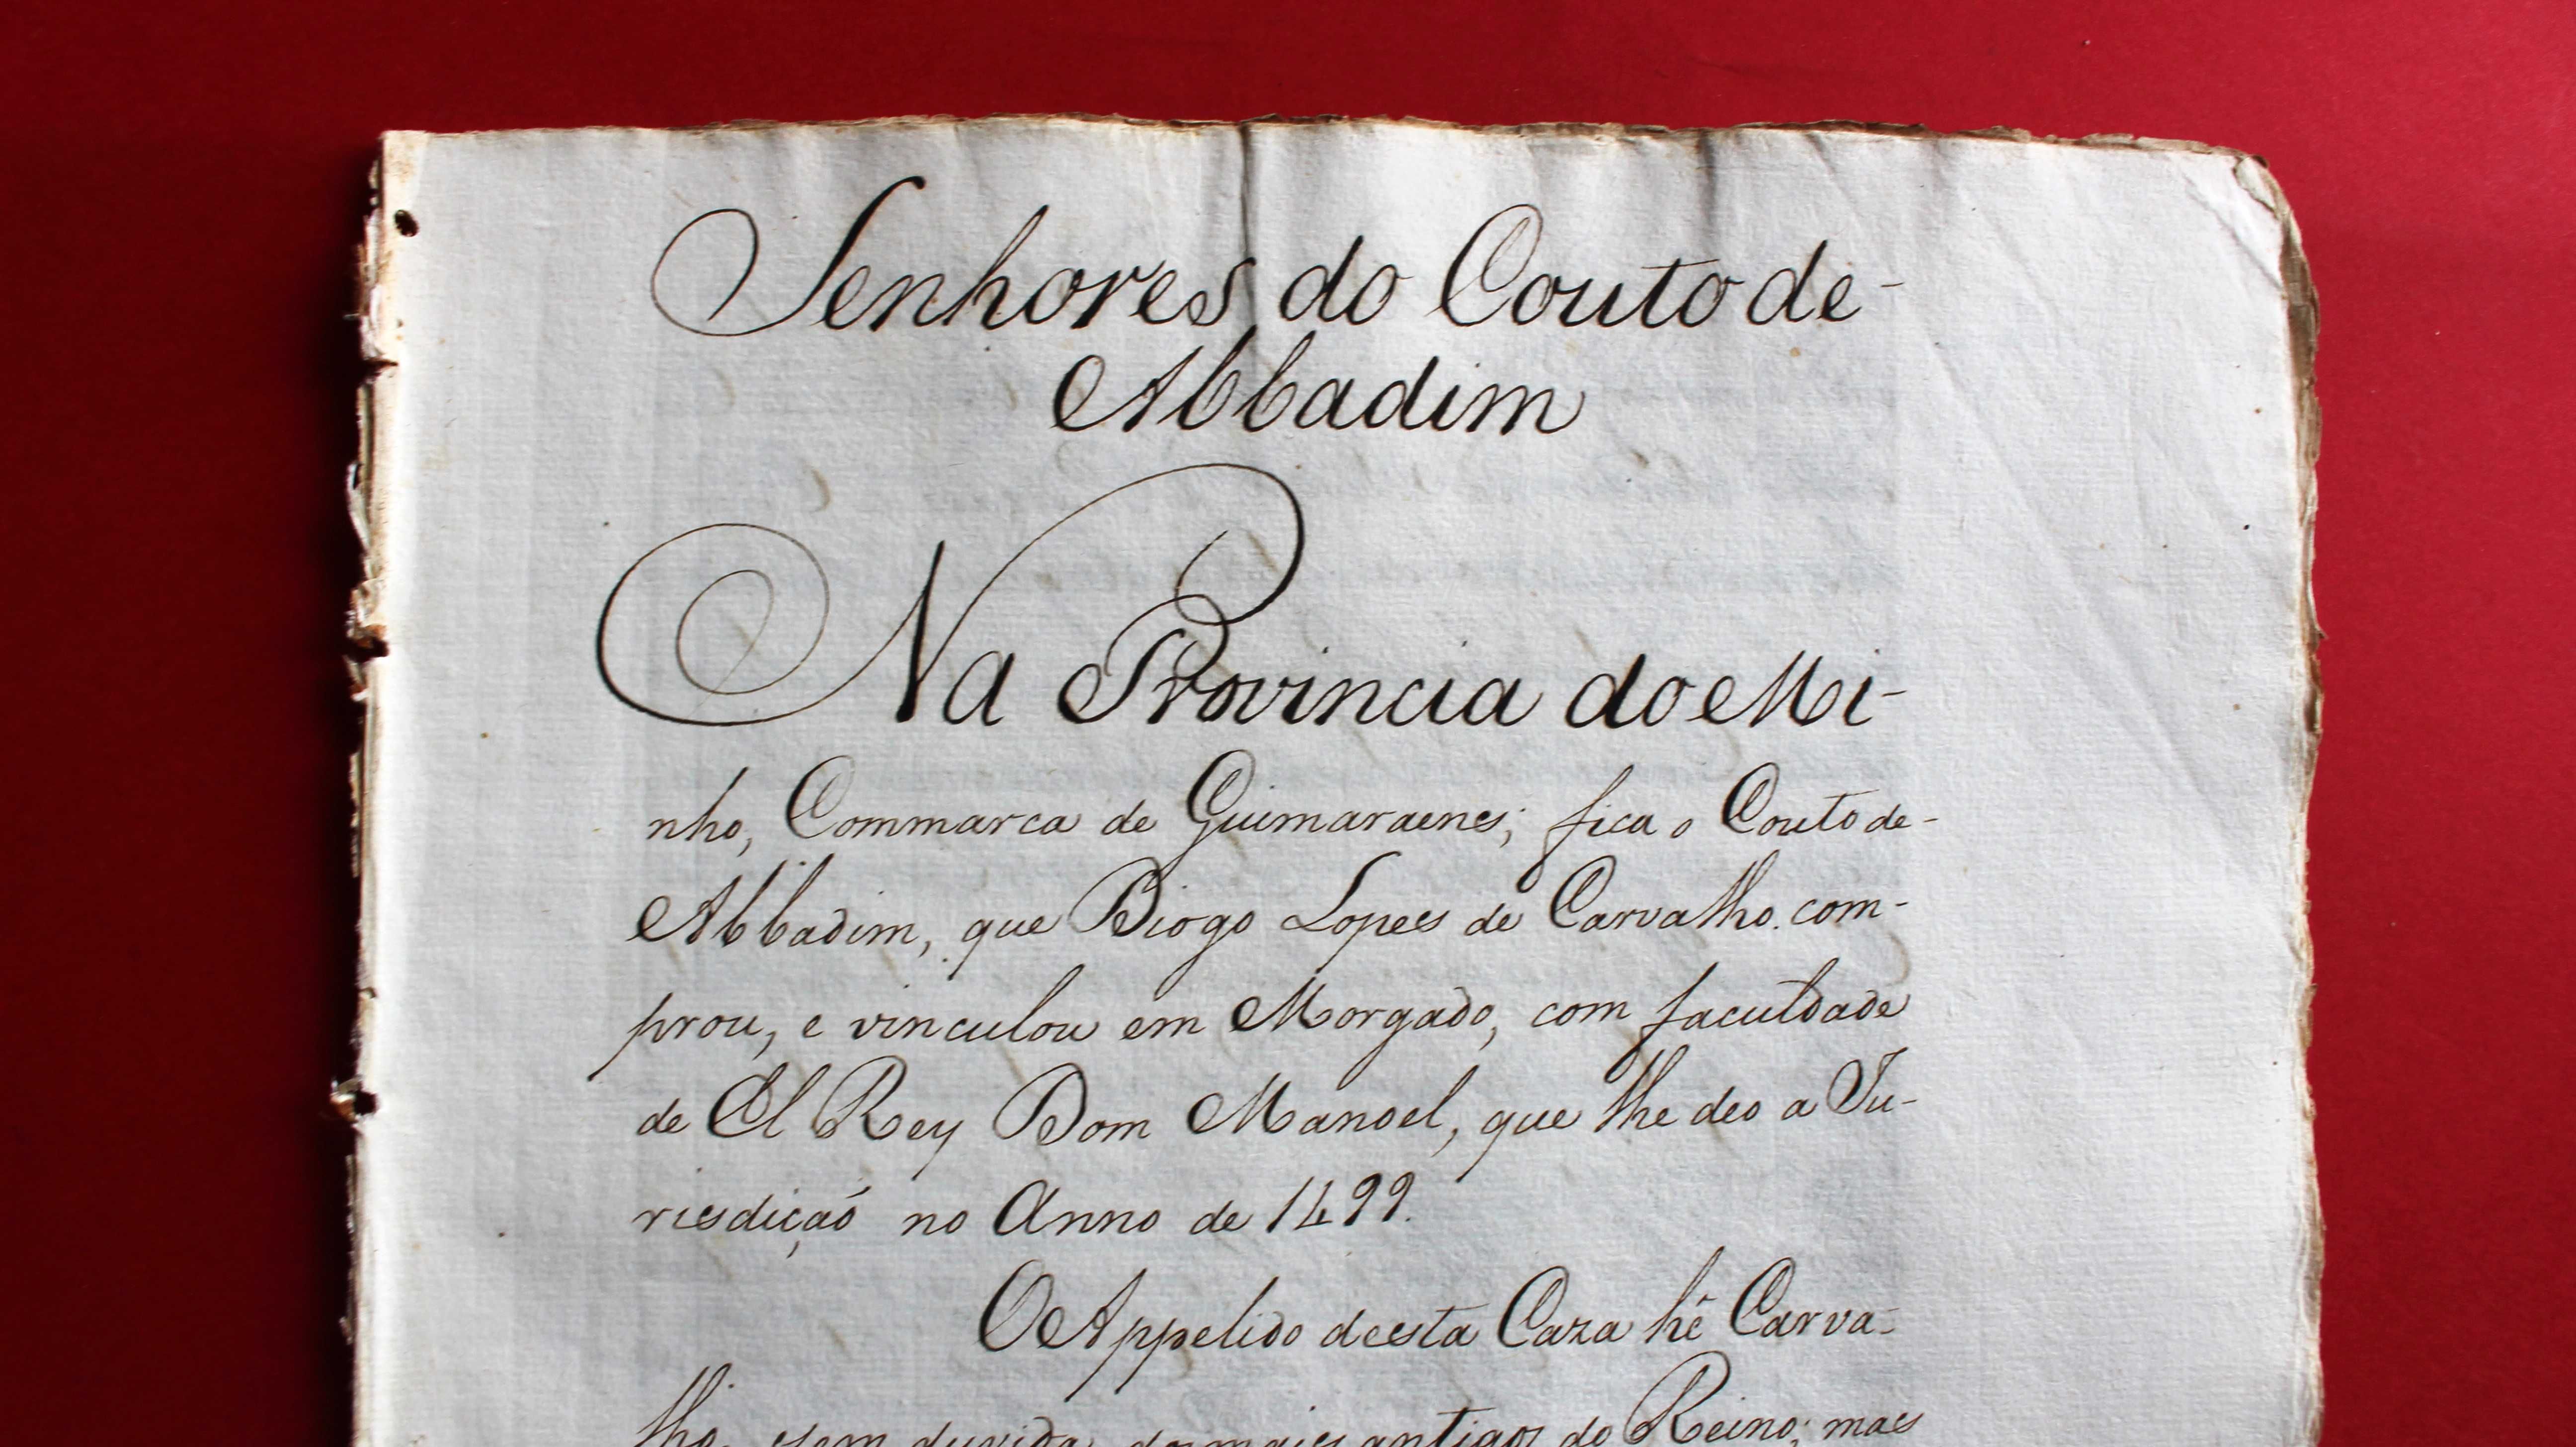 Senhores do Couto de-
Abbadim
Na Provincia do Mi-
nho, Commarca de Guimaraens; fica o Couto de-
Abbadim, que Diogo Lopes de Carvalho. com-
prou, e vinculou em Morgado, com faculdade
de El Rey Dom Manoel, que lhe deo a Ju-
risdiçaõ no Anno de 1499.
O Appelido desta Caza hê Carva-
lho, sem duvida dos mais antigos do Reino; mas